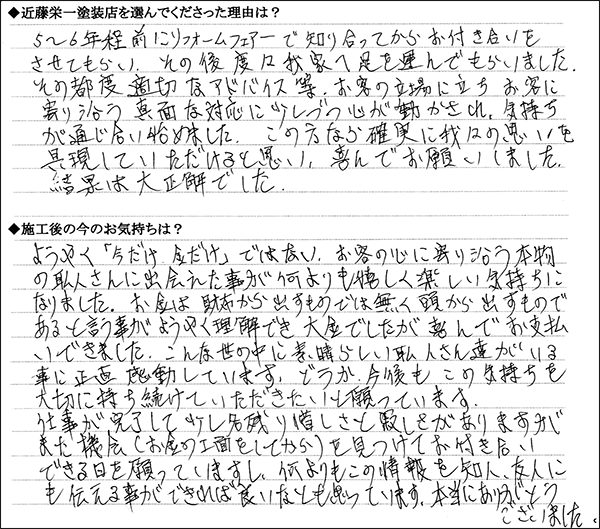 ◆近藤栄一塗装店を選んでくださった理由は？
5〜6年程前にリフォームフェアーで知り合ってからお付き合いを
させてもらい、その後度々我家へ足を運んでもらいました。
その都度適切なアドバイス等、お客の立場に立ちお客に
寄り沿う真面な対応に少しづつ心が動かされ、気持ち
が通じ合い始めました。この方なら確実に我々の思いを
具現していただけると思い、喜んでお願いしました。
結果は大正解でした。
◆施工後の今のお気持ちは？
ようやく「今だけ金だけ」ではない、お客の心に寄り沿う本物
の職人さんに出会えた事が何よりも嬉しく楽しい気持ちに
なりました。お金は財布から出すものでは無く頭から出すもので
あると言う事がようやく理解でき大金でしたが喜んでお支払
いできました。こんな世の中に素晴らしい職人さん達がいる
事に正直感動しています。どうか、今後もこの気持ちを
大切に持ち続けていただきたいと願っています。
仕事が完了して少し名残り惜しさと寂しさがありますが
また機会(お金の工面をしてから)を見つけてお付き合い
できる日を願っていますし、何よりもこの情報を知人、友人に
も伝える事ができれば良いなとも思っています。本当にありがとう
ございました。